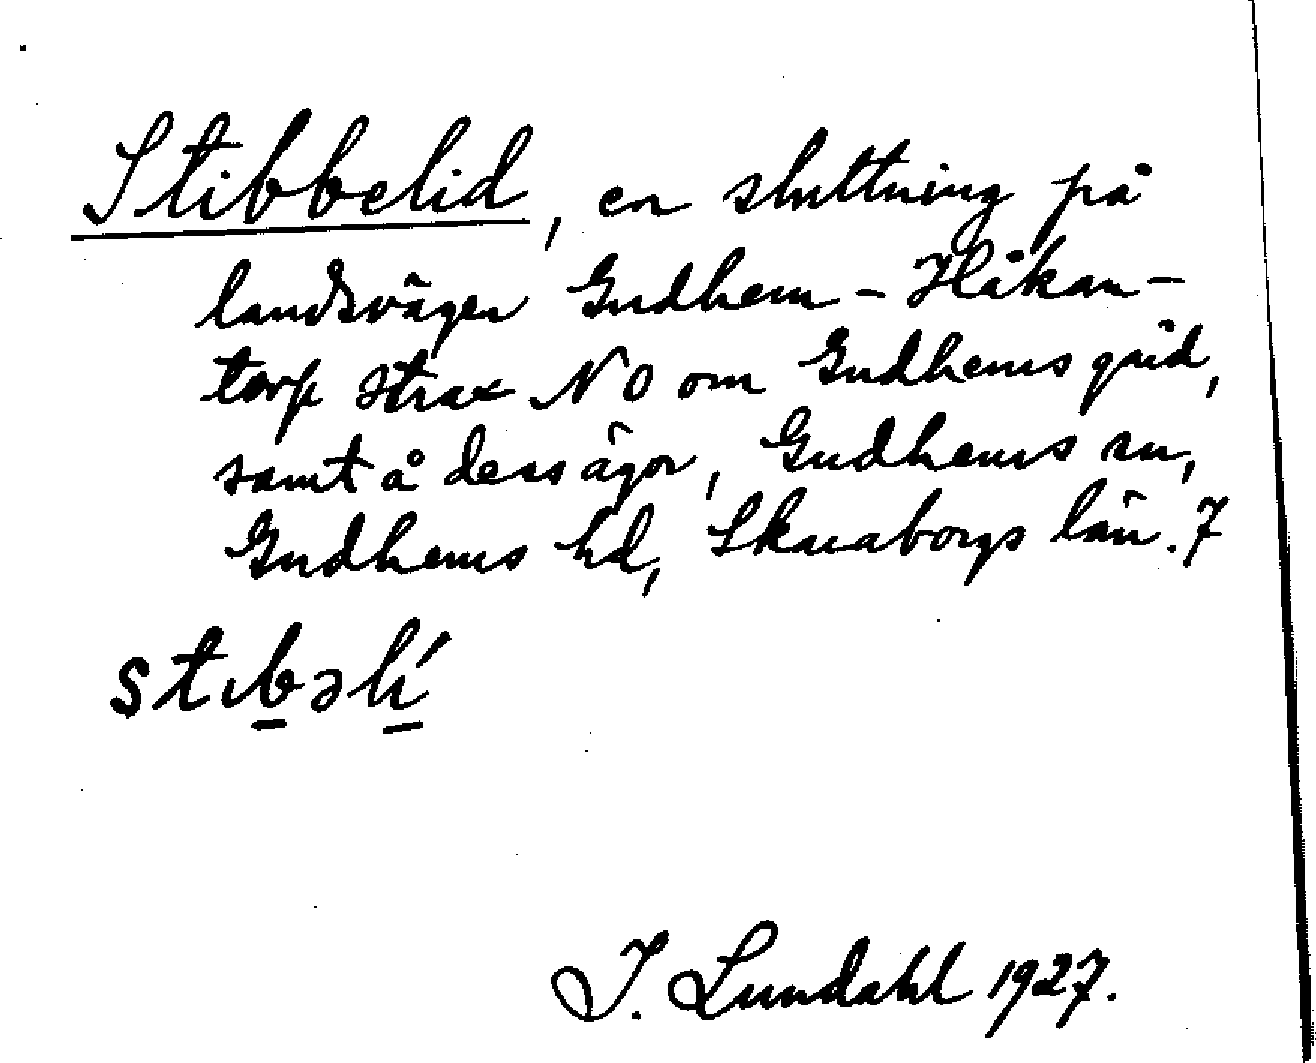 Stibbelid, en sluttning på
landsvägen Gudhem - Håkan-
torp strax NO om Gudhems gård,
samt å dess ägor, Gudhems sn,
Gudhems hd, Skaraborgs län. 7
stıbəlí
I. Lundahl 1927.